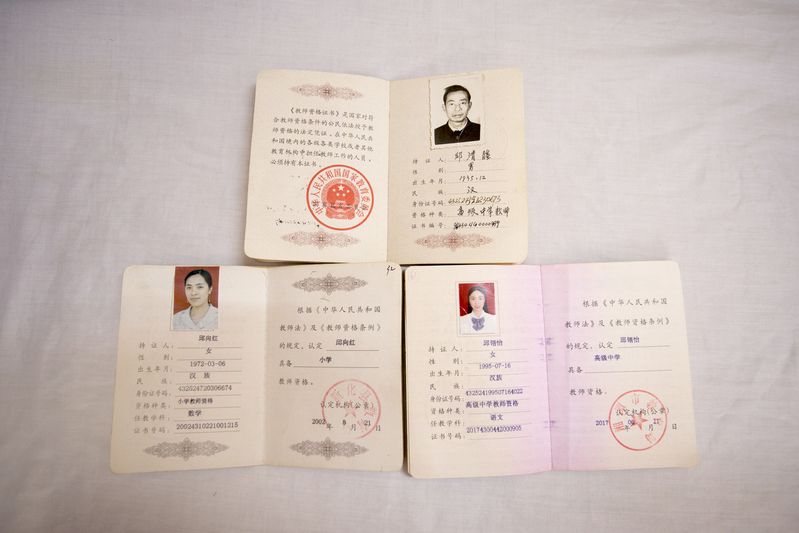 《教师资格证书》是国家对符
合教师资格条件的公民依法授予教
师资格的法定凭证。在中华人民共
和国境内的各级各类学校或者其他
教育机构中担任教师工作的人员，
必须持有本证书。
中华人民共和国国家教育委员会
持证人: 邱清
性别: 男
出生年月: 1945.12
民族: 汉
身份证号码:
资格种类: 高级中学教师
证书编号:
持证人: 邱向红
性别: 女
出生年月: 1972-03-06
民族: 汉族
身份证号码: 432524720306674
资格种类: 小学教师资格
任教学科: 数学
证书号码: 20024310221001215
92
根据《中华人民共和国
教师法》及《教师资格条例》
的规定，认定 邱向红
具备 小学
教师资格。
认定机构(公章)
2002年 8月 21日
持证人: 邱翎怡
性别: 女
出生年月: 1995-07-16
民族: 汉族
身份证号码: 432524199507164022
资格种类: 高级中学教师资格
任教学科: 语文
证书号码: 20174300442000905
根据《中华人民共和国
教师法》及《教师资格条例》
的规定，认定 邱翎怡
具备 高级中学
教师资格。
认定机构(公章)
2017年 月 日